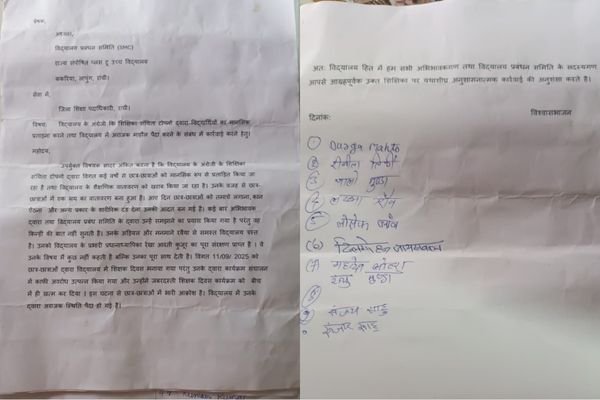 प्रेषक,
अध्यक्ष,
विद्यालय प्रबंधन समिति (SMC)
राज्य संपोषित प्लस टू उच्च विद्यालय
ककरिया, लापुंग, रांची।
सेवा में,
जिला शिक्षा पदाधिकारी, रांची।
विषय: विद्यालय के अंग्रेजी कि शिक्षिका संचिता टोपनो द्वारा विद्यार्थियों का मानसिक
प्रताड़ना करने तथा विद्यालय में अराजक माहौल पैदा करने के संबंध में कार्रवाई करने हेतु।
महोदय,
उपर्युक्त विषयक सादर अंकित करना है कि विद्यालय के अंग्रेजी के शिक्षिका
संचिता टोपनो द्वारा विगत कई वर्षों से छात्र-छात्राओं को मानसिक रूप से प्रताड़ित किया जा
रहा है तथा विद्यालय के शैक्षणिक वातावरण को खराब किया जा रहा है। उनके वजह से छात्र-
छात्राओं में एक भय का वातावरण बना हुआ है। आए दिन छात्र-छात्राओं को तमाचे लगाना, कान
ऐंठना और अन्य प्रकार के शारीरिक दंड देना उनकी आदत बन गई है। कई बार अभिभावक
द्वारा तथा विद्यालय प्रबंध समिति के द्वारा उन्हें समझाने का प्रयास किया गया है परंतु वह
किन्हीं की बात नहीं सुनती है। उनके अड़ियल और मनमानी रवैया से समस्त विद्यालय त्रस्त
है। उनको विद्यालय के प्रभारी प्रधानाध्यापिका रेखा आरती कुजूर का पूरा संरक्षण प्राप्त है। वे
उनके विषय में कुछ नहीं कहती है बल्कि उनका पूरा साथ देती है। विगत 11/09/ 2025 को
छात्र-छात्राओं द्वारा विद्यालय में शिक्षक दिवस मनाया गया परंतु उनके द्वारा कार्यक्रम संचालन
में काफी अवरोध उत्पन्न किया गया और उन्होंने जबरदस्ती शिक्षक दिवस कार्यक्रम को बीच
में ही खत्म कर दिया। इस घटना से छात्र-छात्राओं में भारी आक्रोश है। विद्यालय में उनके
द्वारा अराजक स्थिति पैदा हो गई है।
अतः विद्यालय हित में हम सभी अभिभावकगण तथा विद्यालय प्रबंधन समिति के सदस्यगण
आपसे आग्रहपूर्वक उक्त शिक्षिका पर यथाशीघ्र अनुशासनात्मक कार्रवाई की अनुशंसा करते है।
दिनांक: विश्वासभाजन
① Durga Mahto
②
③
④
⑤
(6)
(7) महादेव
⑧
⑨ संजय साहु
साहु